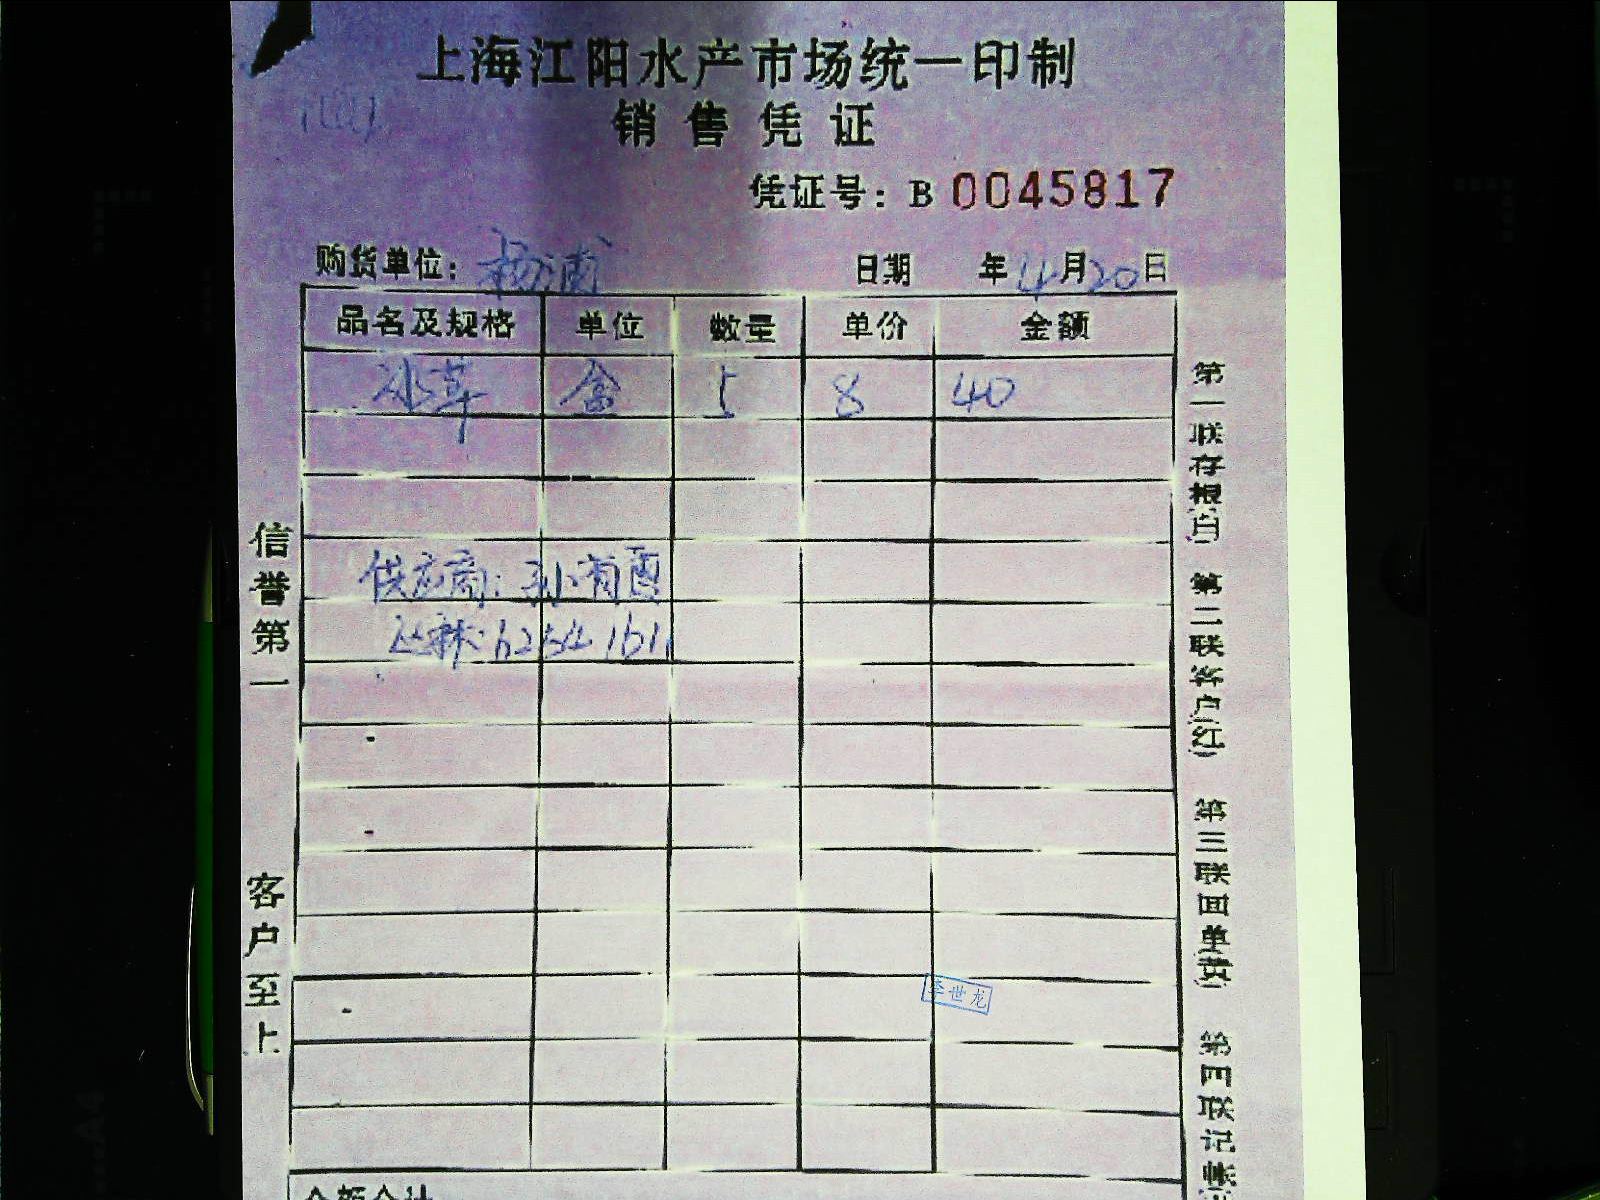 上海江阳水产市场统一印制
销售凭证
凭证号：B 0045817
购货单位：杨浦
日期 年4月20日
品名及规格 单位 数量 单价 金额
冰草 盒 5 8 40
供应商：孙有酉
信誉第一
客户至上
世龙
第一联存根(白)
第二联客户(红)
第三联回单
第四联记帐
金额合计